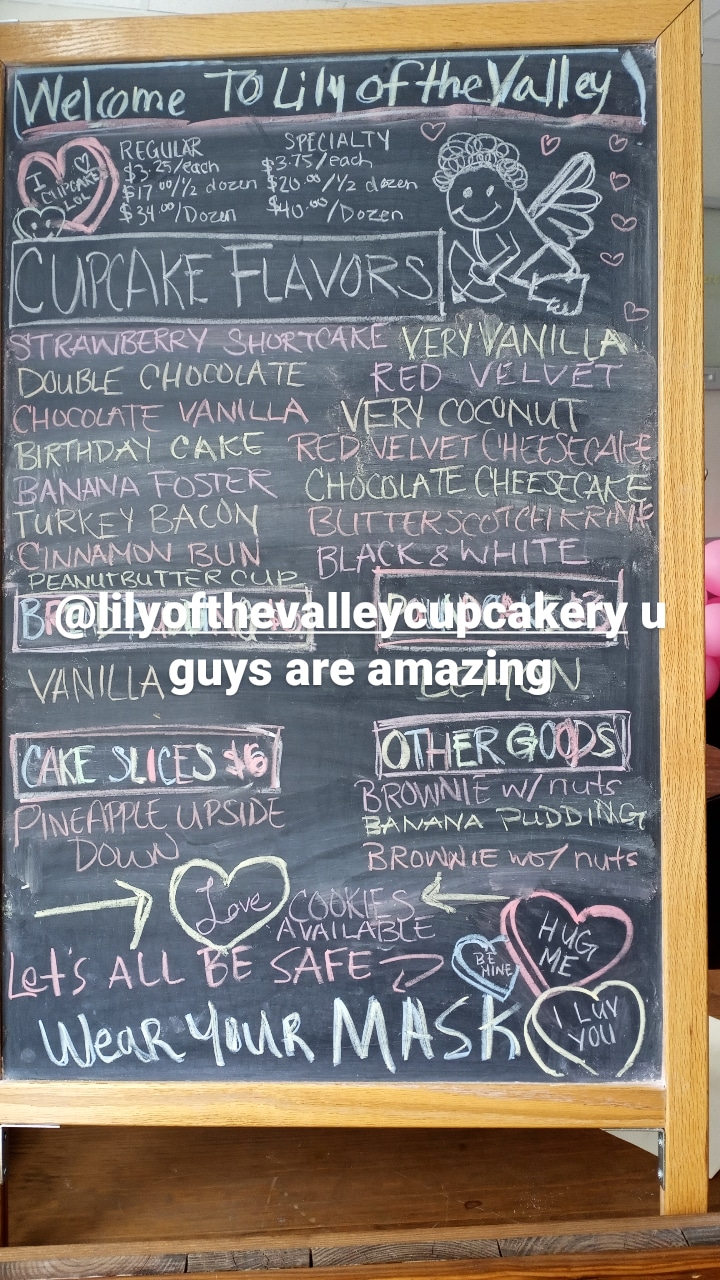 Welcome To Lily of the Valley
I CUPCAKE LOL
REGULAR
$3.25/each
$17.00/1/2 dozen
$34.00/Dozen
SPECIALTY
$3.75/each
$20.00/1/2 dozen
$40.00/Dozen
CUPCAKE FLAVORS
STRAWBERRY SHORTCAKE VERY VANILLA
DOUBLE CHOCOLATE RED VELVET
CHOCOLATE VANILLA VERY COCONUT
BIRTHDAY CAKE RED VELVET CHEESECAKE
BANANA FOSTER CHOCOLATE CHEESECAKE
TURKEY BACON BUTTERSCOTCH KRIMP
CINNAMON BUN BLACK & WHITE
PEANUTBUTTER CUP
@lilyofthevalleycupcakery u
guys are amazing
VANILLA LEMON
CAKE SLICES $6
PINEAPPLE UPSIDE
DOWN
OTHER GOODS
BROWNIE w/ nuts
BANANA PUDDING
BROWNIE wo/ nuts
Love COOKIES
AVAILABLE
Let's ALL BE SAFE
BE
MINE
HUG
ME
Wear your MASK
I LUV
YOU